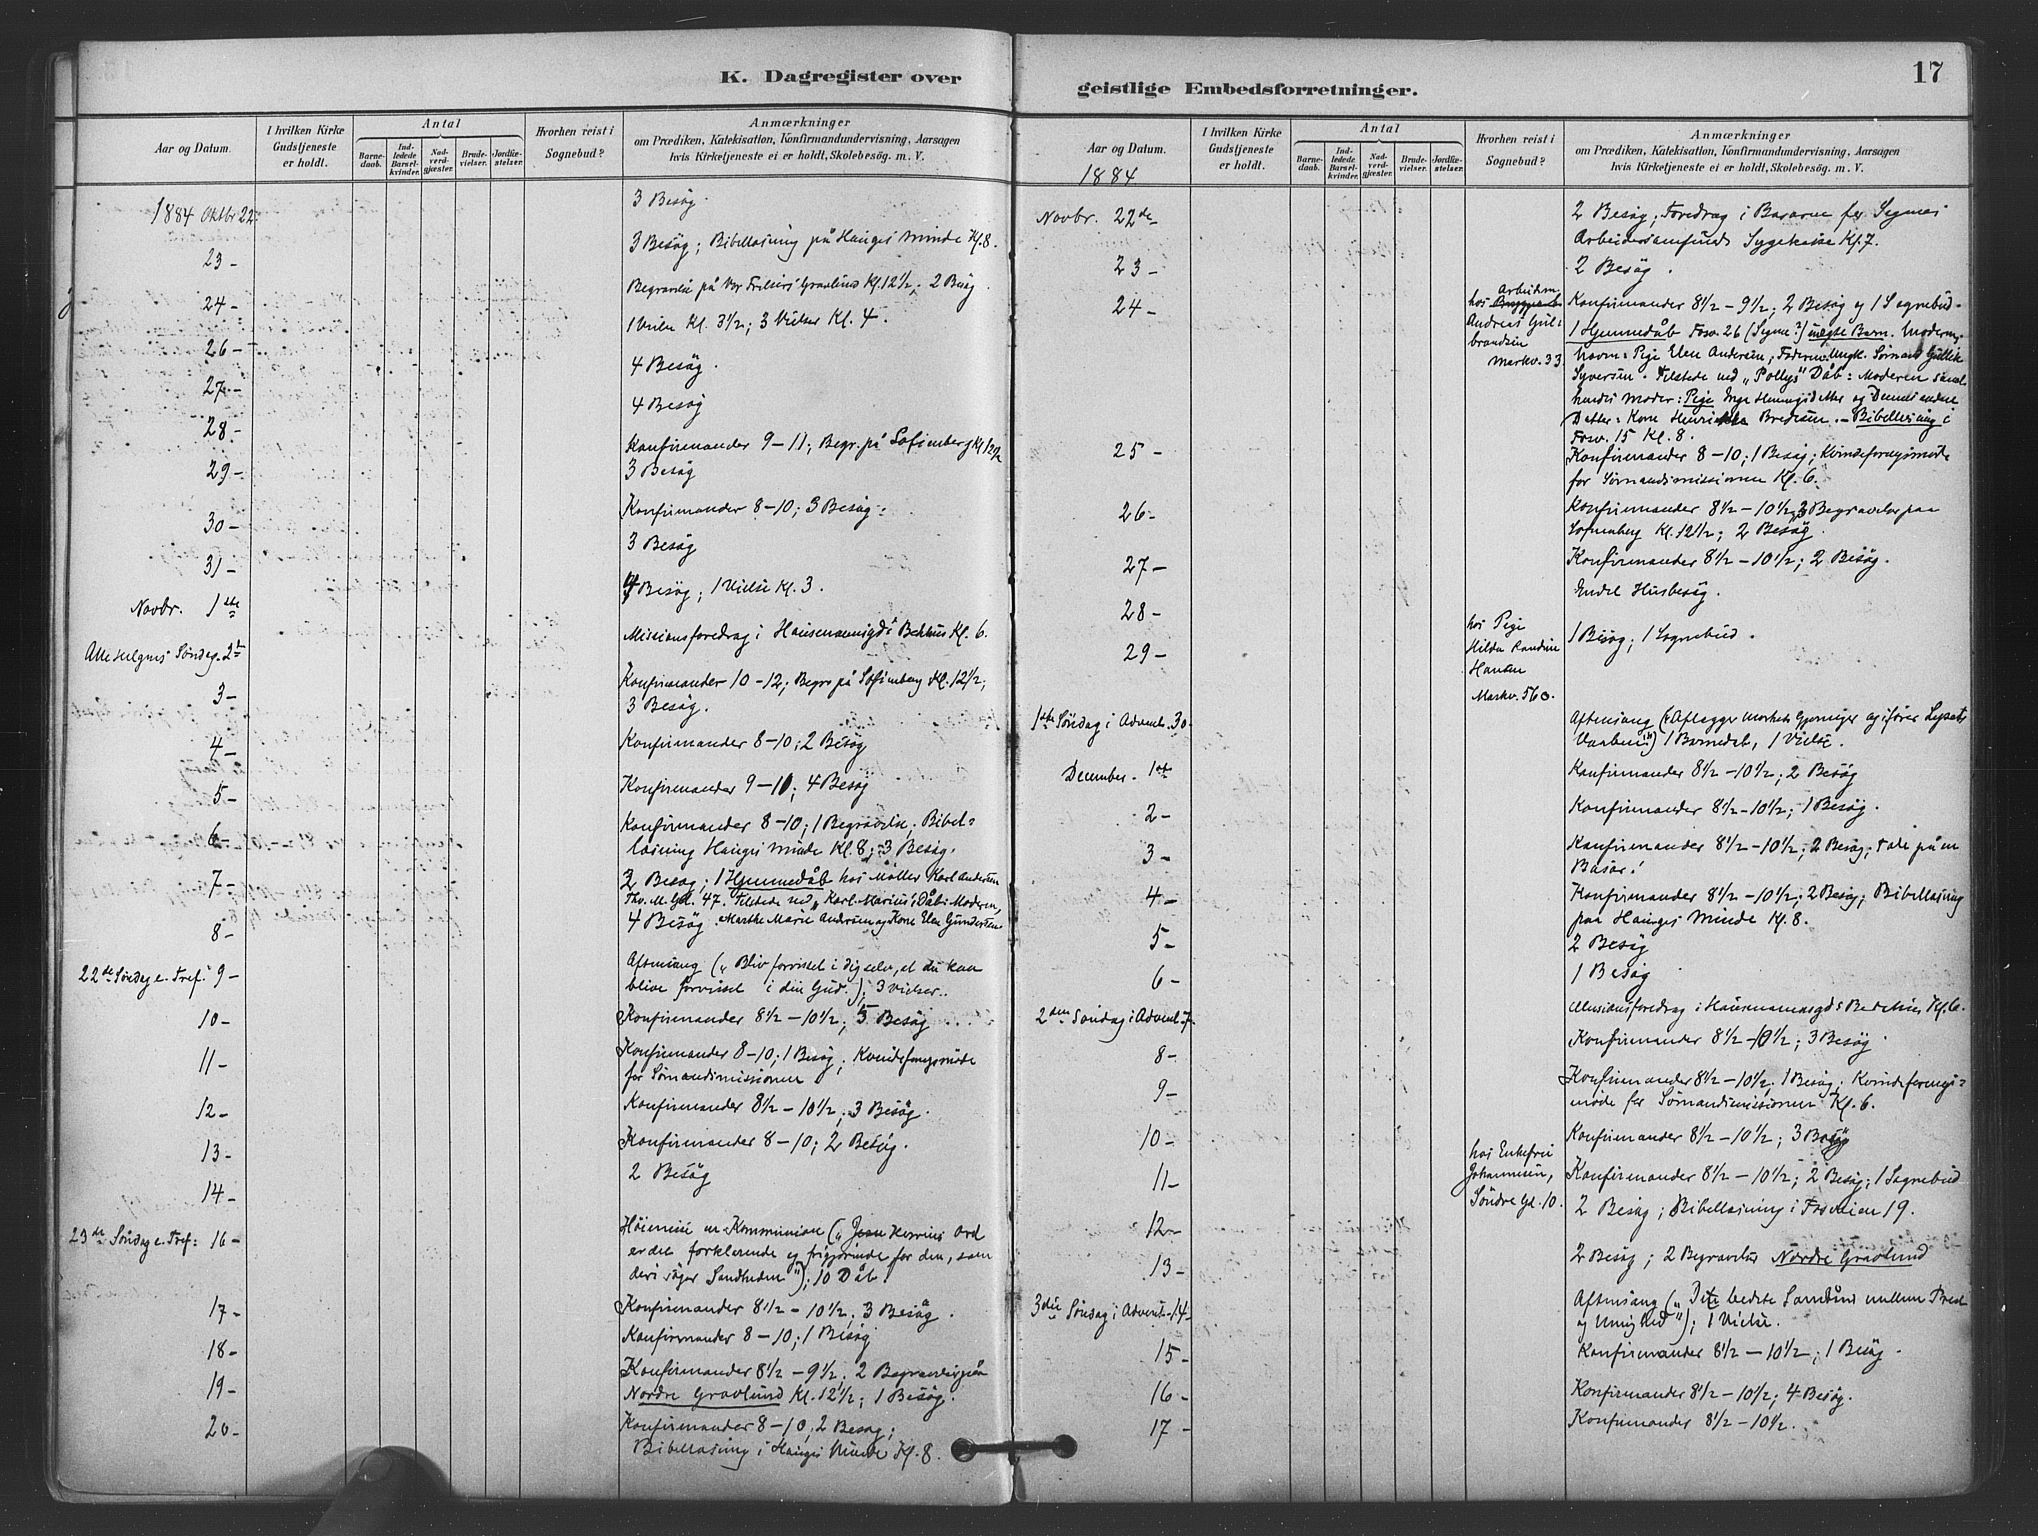 K. Dagregister over
Aar og Datum.
I hvilken Kirke Gudstjeneste er holdt.
Antal
Barnedaab.
Indledede Barselkvinder.
Nadverdgjæster.
Brudevielser.
Jordfæstelser.
Hvorhen reist i Sognebud?
Anmærkninger
om Prædiken, Katekisation, Konfirmandundervisning, Aarsagen
hvis Kirketjeneste ei er holdt, Skolebesög. m. V.
1884 Oktbr 22.
3 Besøg.
23 -
3 Besøg; Bibellæsning på Hauges Minde Kl. 8.
24 -
Begravelse på Vor Frelsers Gravlund Kl. 12½; 2 Besøg
26 -
1 Vielse Kl. 3½; 3 Vielser Kl. 4.
27 -
4 Besøg.
28 -
4 Besøg
29 -
Konfirmander 9-11; Begr. på Sofienberg Kl 12½
3 Besøg
30 -
Konfirmander 8-10; 3 Besøg.
31 -
3 Besøg
Novbr. 1ste
4 Besøg; 1 Vielse Kl. 3.
Allehelgens Søndag 2den
Missionsforedrag i Hausmannsgds Bedehus Kl. 6.
3 -
Konfirmander 10-12; Begr. på Sofienberg Kl. 12½;
3 Besøg.
4 -
Konfirmander 8-10; 2 Besøg
5 -
Konfirmander 9-11; 4 Besøg
6 -
Konfirmander 8-10; 1 Begravelse; Bibel-
læsning Hauges Minde Kl. 8; 3 Besøg.
7 -
2 Besøg; 1 Hjemmedåb hos Møller Karl Andersen
Thv. M. Gd. 47. Tilstede ved „Karl Marius's Dåb: Moderen,
8 -
4 Besøg. Marthe Marie Andersen og Kone Elen Gundersen.
22de Søndag e. Tref. 9 -
Aftensang („Bliv forvisset i dig selv, at du kan
blive forvisset i din Gud."); 3 Vielser.
10 -
Konfirmander 8½ - 10½; 5 Besøg
11 -
Konfirmander 8-10; 1 Besøg; Kvindeforngsmøde
for Sømandsmissionen
12 -
Konfirmander 8½ - 10½; 3 Besøg.
13 -
Konfirmander 8-10; 2 Besøg.
14 -
2 Besøg
23de Søndag e. Tref: 16 -
Høimesse m. Kommunion („Herrens Ord
er det forklarende og frigjørende for den, som
deri søger Sandheden"); 10 Dåb.
17 -
Konfirmander 8½ - 10½; 3 Besøg.
18 -
Konfirmander 8-10; 1 Besøg
19 -
Konfirmander 8½ - 9½; 2 Begravelser på
Nordre Gravlund Kl. 12½; 1 Besøg.
20 -
Konfirmander 8-10, 2 Besøg;
Bibellæsning i Hauges Minde Kl. 8.
geistlige Embedsforretninger.
17
Aar og Datum.
I hvilken Kirke Gudstjeneste er holdt.
Antal
Barnedaab.
Indledede Barselkvinder.
Nadverdgjæster.
Brudevielser.
Jordfæstelser.
Hvorhen reist i Sognebud?
Anmærkninger
om Prædiken, Katekisation, Konfirmandundervisning, Aarsagen
hvis Kirketjeneste ei er holdt, Skolebesög. m. V.
1884
Novbr. 22de
2 Besøg; Foredrag i for
Arbeidersamfunds Sygekasse Kl. 7.
23 -
2 Besøg.
24 -
hos Arbeidsm.
Andreas Gul-
brandsen
Markv. 33
Konfirmander 8½ - 9½; 2 Besøg og 1 Sognebud.
1 Hjemmedåb Fosv. 26 uægte Barn. Moderens
Navn: Pige Elen Andersen; Faderens Ungk. Sømand Gullik
Syversen. Tilstede ved „Pollys" Dåb: Moderen samt
hendes Moder: Pige Inge Henningsdatter og Dennes anden
Datter: Kone Henrikke Bredesen. - Bibellæsning i
Fosv. 15 Kl. 8.
25 -
Konfirmander 8-10; 1 Besøg; Kvindeforngsmøde
for Sømandsmissionen Kl. 6.
26 -
Konfirmander 8½ - 10½; 3 Begravelser paa
Sofienberg Kl. 12½; 2 Besøg.
27 -
Konfirmander 8½ - 10½; 2 Besøg.
28 -
Endel Husbesøg.
29 -
hos Pige
Hilda Randine
Hansen
Markv. 56 o.
1 Besøg; 1 Sognebud.
1ste Søndag i Advent. 30.
Aftensang („Aflægger Mørkets Gjerninger og ifører Lysets
Vaaben!") 1 Barnedåb, 1 Vielse.
December. 1ste
Konfirmander 8½ - 10½; 2 Besøg
2 -
Konfirmander 8½ - 10½; 1 Besøg.
3 -
Konfirmander 8½ - 10½; 2 Besøg; tale på en
Basar.
4 -
Konfirmander 8½ - 10½; 2 Besøg; Bibellæsning
paa Hauges Minde Kl. 8.
5 -
2 Besøg
6 -
1 Besøg
2den Søndag i Advent 7.
Missionsforedrag i Hausmannsgds Bedehus Kl. 6.
8 -
Konfirmander 8½ - 10½; 3 Besøg.
9 -
Konfirmander 8½ - 10½; 1 Besøg; Kvindeforengs-
møde for Sømandsmissionen Kl. 6.
10 -
Konfirmander 8½ - 10½; 3 Besøg
11 -
hos Enkefru
Johannesen,
Søndre Gd. 10.
Konfirmander 8½ - 10½; 2 Besøg; 1 Sognebud
12 -
2 Besøg; Bibellæsning i Fosveien 19.
13 -
2 Besøg; 2 Begravelser Nordre Gravlund
3die Søndag i Advent - 14 -
Aftensang („Det bedste Samfund mellem Præst
og Menighed"); 1 Vielse.
15 -
Konfirmander 8½ - 10½; 1 Besøg.
16 -
Konfirmander 8½ - 10½; 4 Besøg.
17 -
Konfirmander 8½ - 10½.